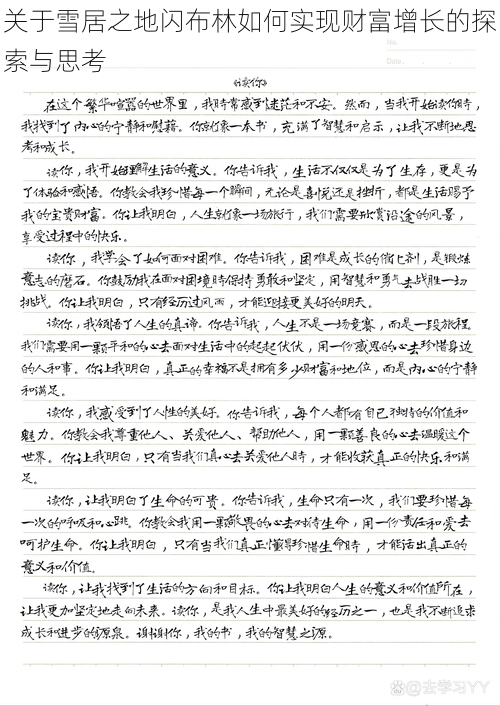 关于雪居之地闪布林如何实现财富增长的探
索与思考
No.
Date.
《读你》
在这个繁华喧嚣的世界里，我时常感到迷茫和不安。然而，当我开始读你时，
我找到了内心的宁静和慰藉。你就像一本书，充满了智慧和启示，让我不断地思
考和成长。
读你，我开始理解生活的意义。你告诉我，生活不仅仅是为了生存，更是为
了体验和感悟。你教会我珍惜每一个瞬间，无论是喜悦还是挫折，都是生活赐予
我的宝贵财富。你让我明白，人生就像一场旅行，我们需要欣赏沿途的风景，
享受过程中的快乐。
读你，我学会了如何面对困难。你告诉我，困难是成长的催化剂，是锻炼
意志的磨石。你鼓励我在面对困境时保持勇敢和坚定，用智慧和勇气去战胜一切
挑战。你让我明白，只有经历过风雨，才能迎接更美好的明天。
读你，我领悟了人生的真谛。你告诉我，人生不是一场竞赛，而是一段旅程。
我们需要用一颗平和的心去面对生活中的起起伏伏，用一份感恩的心去珍惜身边
的人和事。你让我明白，真正的幸福不是拥有多少财富和地位，而是内心的宁静
和满足。
读你，我感受到了人性的美好。你告诉我，每个人都有自己独特的价值和
魅力。你教会我尊重他人、关爱他人、帮助他人，用一颗善良的心去温暖这个
世界。你让我明白，只有当我们真心去关爱他人时，才能收获真正的快乐和满
足。
读你，让我明白了生命的可贵。你告诉我，生命只有一次，我们要珍惜每
一次的呼吸和心跳。你教会我用一颗敬畏的心去对待生命，用一份责任和爱去
呵护生命。你让我明白，只有当我们真正懂得珍惜生命时，才能活出真正的
意义和价值。
读你，让我找到了生活的方向和目标。你让我明白人生的意义和价值所在，
让我更加坚定地走向未来。读你，是我人生中最美好的经历之一，也是我不断追求
成长和进步的源泉。谢谢你，我的书，我的智慧之源。
@去学习YY